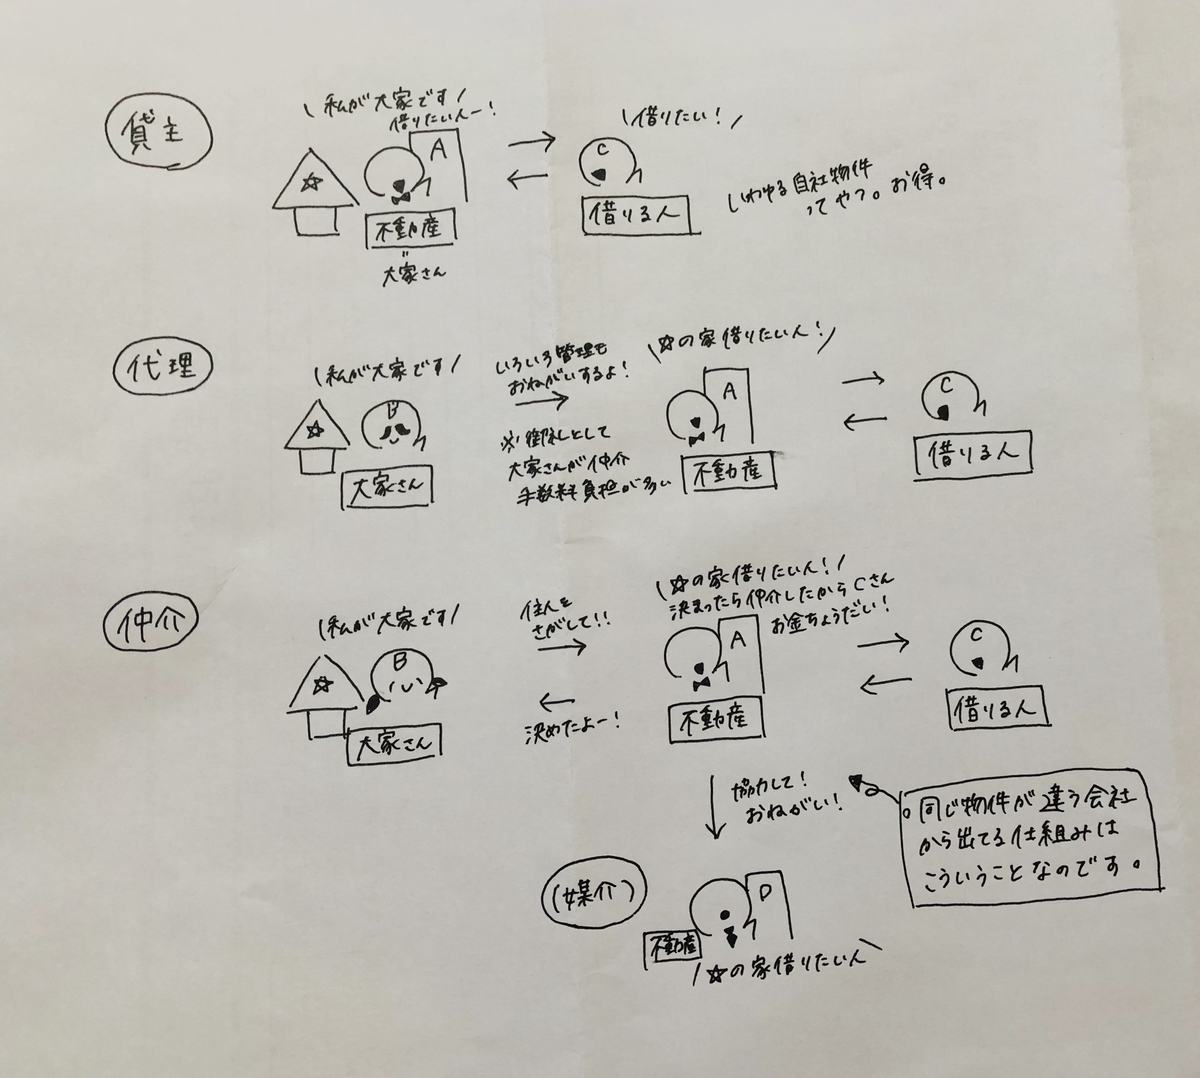 貸主
\私が大家です/
借りたい人ー!
A
不動産
〃
大家さん
C
\借りたい!/
借りる人
いわゆる自社物件
ってやつ。お得。
代理
\私が大家です/
B
大家さん
いろいろ管理も
おねがいするよ!
※ 御礼として
大家さんが仲介
手数料負担が多い
\☆の家借りたい人!/
A
不動産
C
借りる人
仲介
\私が大家です/
B
大家さん
住人を
さがして!!
決めたよー!
\☆の家借りたい人!/
決まったら仲介したからCさん
お金ちょうだい!
A
不動産
C
借りる人
協力して!
おねがい!
同じ物件が違う会社
から出てる仕組みは
こういうことなのです。
(媒介)
D
不動産
/☆の家借りたい人\